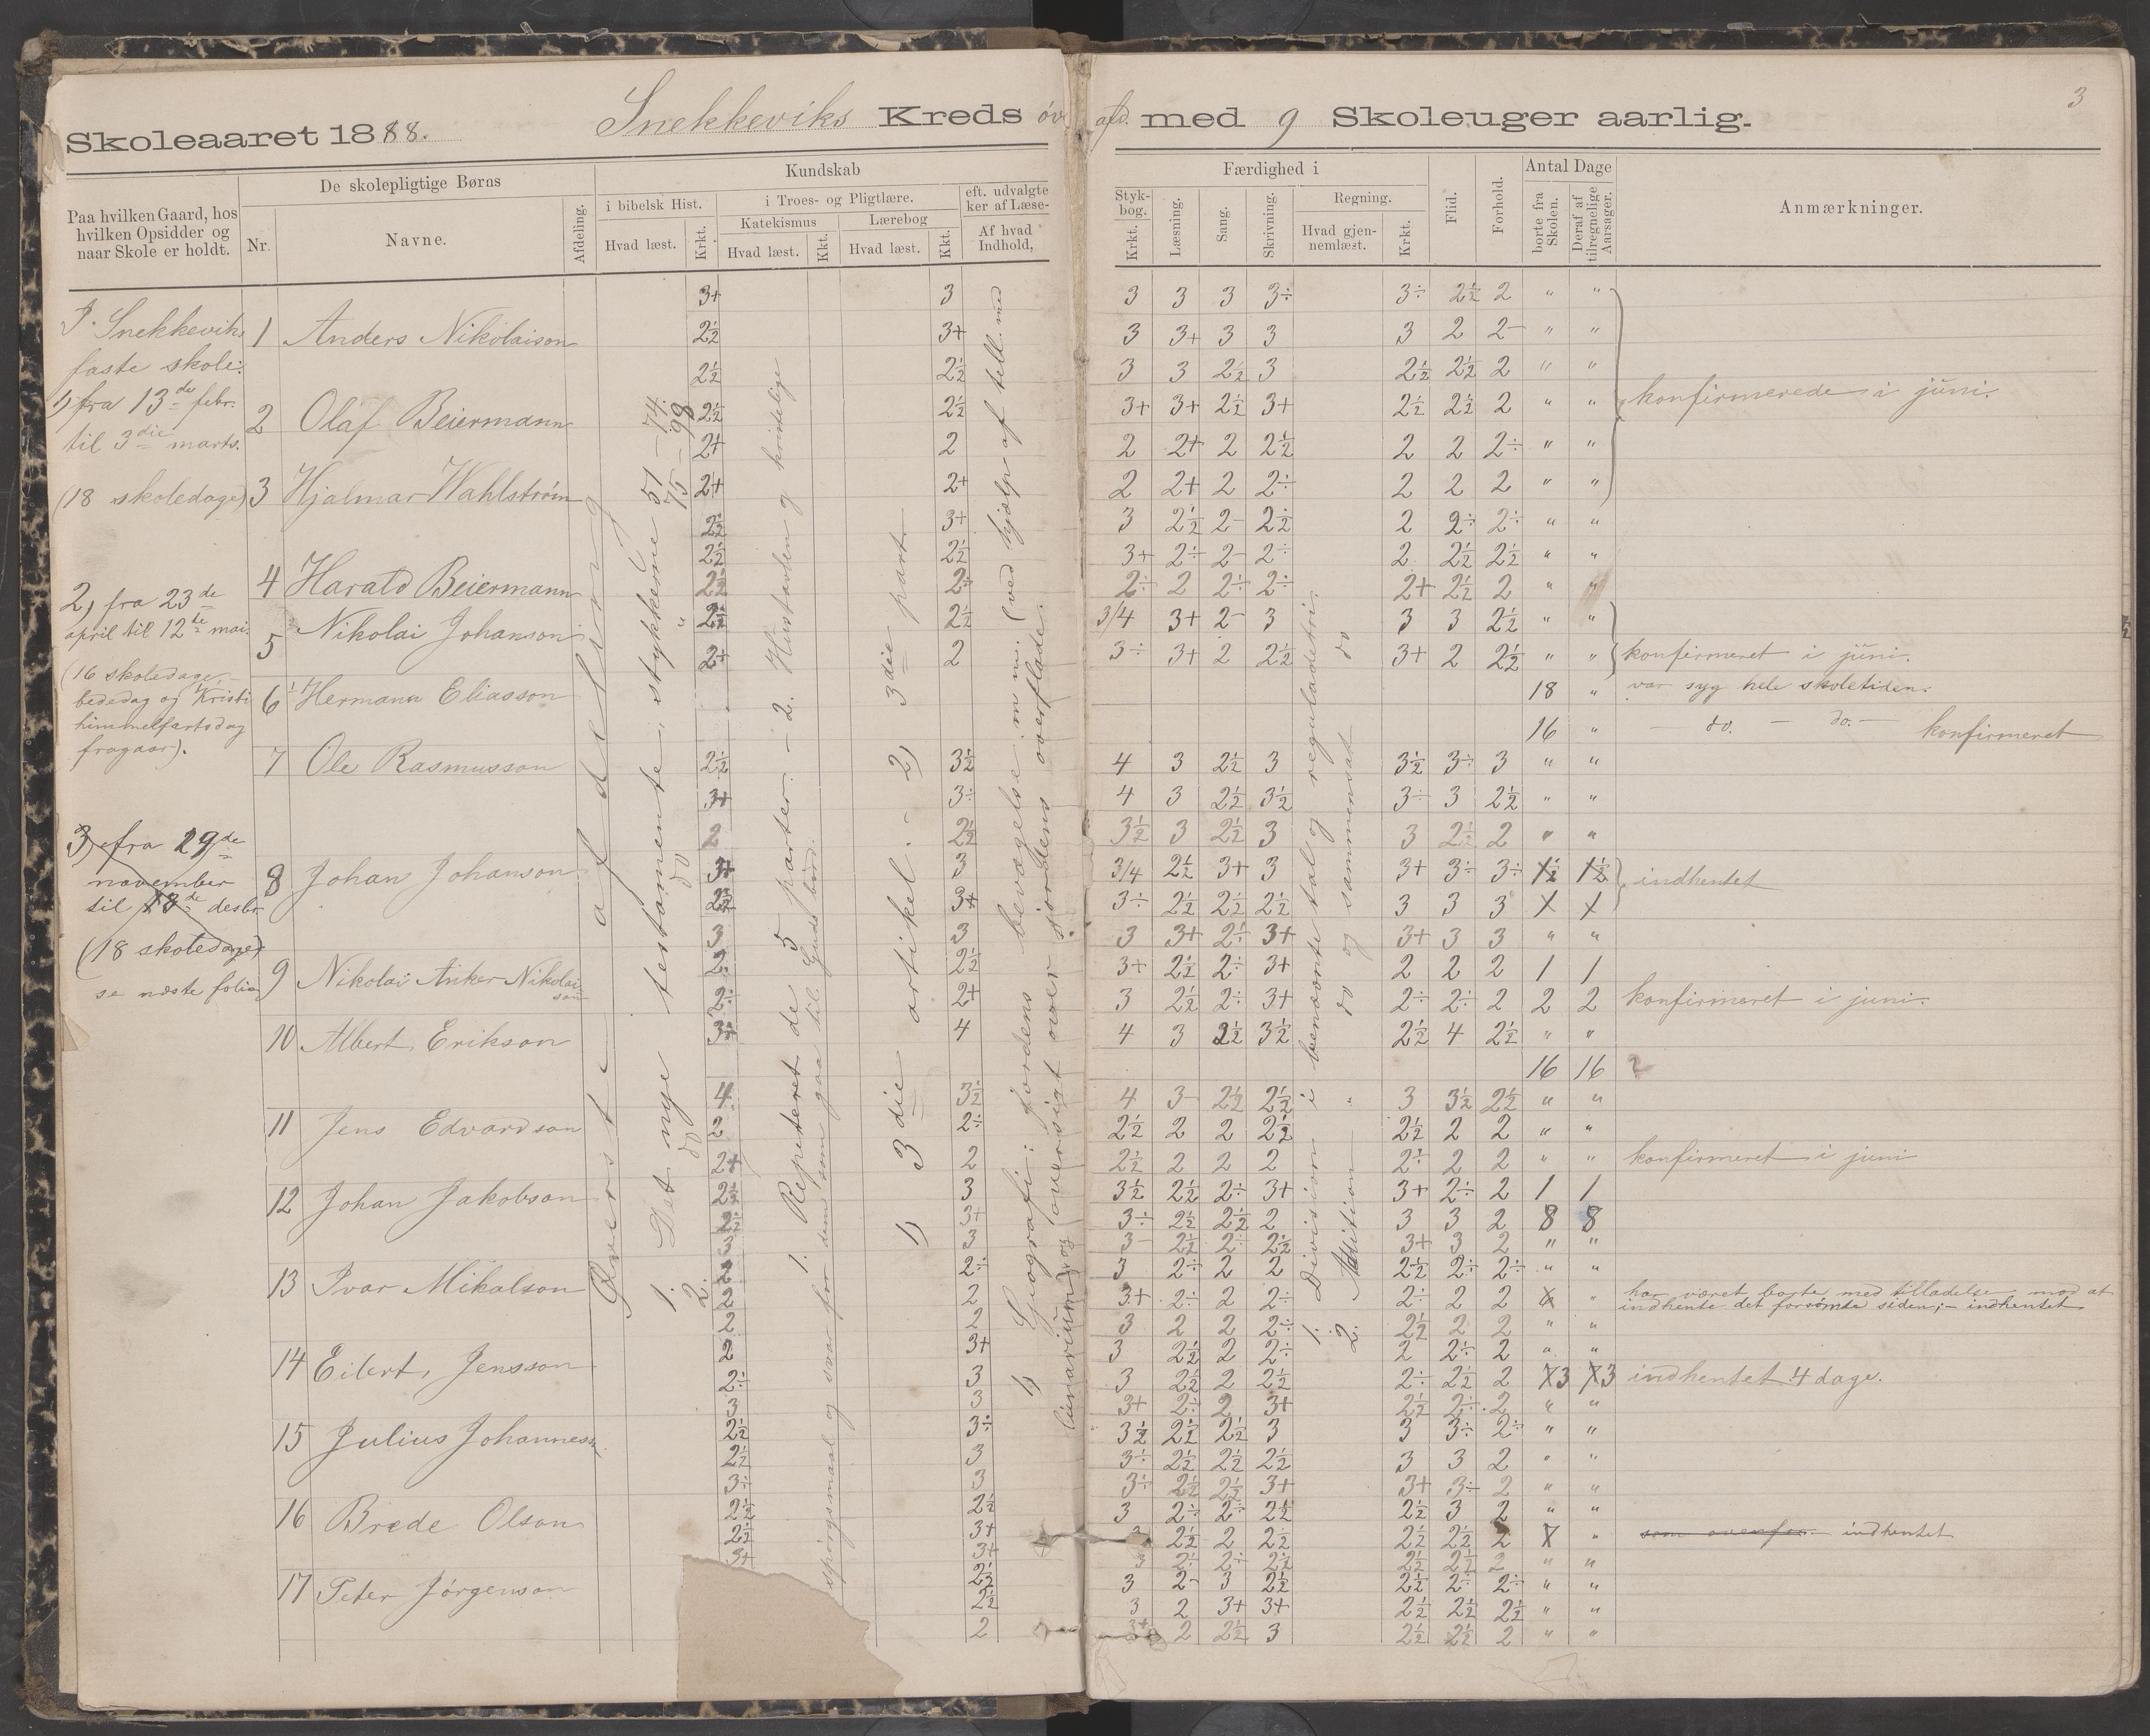 3
Skoleaaret 1888. Snekkeviks Kreds öv. afd. med 9 Skoleuger aarlig.
Paa hvilken Gaard, hos
hvilken Opsidder og
naar Skole er holdt.
De skolepligtige Børns
Nr. Navne. Afdeling.
Kundskab
i bibelsk Hist.
Hvad læst. Krkt.
i Troes- og Pligtlære.
Katekismus Lærebog
Hvad læst. Kkt. Hvad læst. Kkt.
eft. udvalgte
ker af Læse-
Af hvad
Indhold,
Færdighed i
Styk-
bog.
Krkt. Læsning. Sang. Skrivning.
Regning.
Hvad gjen-
nemlæst. Krkt.
Flid. Forhold.
Antal Dage
borte fra
Skolen.
Deraf af
tilregnelige
Aarsager.
Anmærkninger.
I Snekkeviks
faste skole:
1) fra 13de febr.
til 3die marts.
(18 skoledage)
2, fra 23de
april til 12te mai.
(16 skoledage, –
bededag og Kristi
himmelfartsdag
fragaar).
3) fra 29de
november
til 18de desbr.
(18 skoledage)
se næste folio
1 Anders Nikolaison
2 Olaf Beiermann
3 Hjalmar Wahlström
4 Harald Beiermann
5 Nikolai Johanson
6 Hermann Eliasson
7 Ole Rasmusson
8 Johan Johanson
9 Nikolai Anker Nikolai
son
10 Albert Erikson
11 Jens Edvardson
12 Johan Jakobson
13 Ivar Mikalson
14 Eilert Jensson
15 Julius Johanness.
16 Brede Olson
17 Peter Jörgenson
Øverste afdeling
1. Det nye testamente, stykkerne 51 – 74.
2. do do " 75 – 98
1. Repeteret de 5 parter. – 2. Hustavlen
spörgsmaal og svar for dem som gaa til Guds bord.
1) 3die artikel. – 2) 3die part.
1) Geografi: Jordens bevægelse m. m. (ved hjælp af tell. med
oversigt over jordens overflade.
1. Division i benævnte tal og reguladetri.
2. Addition " do og sammensat do
3+ 3 3 3 3 3÷ 3÷ 2½ 2 " "
2½ 3+ 3 3+ 3 3 3 2 2– " "
2½ 2½ 3 3 2½ 3 2½ 2½ 2 " "
2½ 2½ 3+ 3+ 2½ 3+ 2½ 2½ 2 " " konfirmerede i juni.
2+ 2 2 2+ 2 2½ 2 2 2÷ " "
2+ 2+ 2 2+ 2 2÷ 2 2 2 " "
2½ 3+ 3 2½ 2– 2½ 2 2÷ 2÷ " "
2½ 2½ 3+ 2÷ 2– 2÷ 2 2½ 2½ " "
2½ 2÷ 2÷ 2 2÷ 2÷ 2+ 2½ 2 " "
2½ 2½ 3/4 3+ 2– 3 3 3 2½ " "
2+ 2 3÷ 3+ 2 2½ 3+ 2 2½ " " konfirmeret i juni.
18 " var syg hele skoletiden.
16 " – do. – do. – konfirmeret
2½ 3½ 4 3 2½ 3 3½ 3÷ 3 " "
3+ 3÷ 4 3 2½ 3½ 3÷ 3 2½ " "
2 2½ 3½ 3 2½ 3 3 2½ 2 " "
3+ 3 3/4 2½ 3+ 3 3+ 3÷ 3÷ 1½ 1½ indhentet
2½ 3+ 3÷ 2½ 2½ 2½ 3 3 3
3 3 3 3+ 2÷ 3+ 3+ 3 3 " "
2 2½ 3+ 2½ 2÷ 3+ 2 2 2 1 1
2÷ 2+ 3 2½ 2÷ 3+ 2÷ 2÷ 2 2 2 konfirmeret i juni.
3÷ 4 4 3 2½ 3½ 2½ 4 2½ " "
16 16 ?
4 3½ 4 3– 2½ 2½ 3 3½ 2½ " "
2 2÷ 2½ 2 2 2½ 2½ 2 2 " "
2+ 2 2½ 2 2 2 2÷ 2 2 " " konfirmeret i juni
2½ 3 3½ 2½ 2÷ 3+ 3+ 2÷ 2 1 1
2½ 3+ 3÷ 2½ 2½ 2 3 3 2 8 8
3 3 3– 2½ 2÷ 2½ 3+ 3 2 " "
2 2÷ 3 2÷ 2 2 2½ 2÷ 2÷ " "
2 2 3+ 2÷ 2 2÷ 2÷ 2 2 " har været borte med tilladelse mod at
indhente det forsømte siden; – indhentet
2 2 3 2 2 2÷ 2½ 2 2 " "
2 3+ 3 2½ 2 2÷ 2 2÷ 2 " "
2÷ 3 3 2½ 2 2½ 2÷ 2½ 2 3 3 indhentet 4 dage.
3 3 3+ 2÷ 2 3+ 2½ 2÷ 2 " "
2½ 3÷ 3½ 2½ 2½ 3 3 3÷ 2÷ " "
2½ 3 3÷ 2½ 2½ 2½ 3 3 2 " "
3÷ 3 3÷ 2½ 2½ 3+ 3+ 3÷ 2 " "
2½ 2½ 3 2÷ 2÷ 2½ 2½ 3 2 " "
2½ 3+ 2½ 2 2½ 2½ 2½ 2 " som ovenfor. indhentet
3+ 3+ 3 2÷ 2÷ 2½ 2½ 2½ 2 " "
2½ 3 2– 3 2½ 2½ 2÷ 2÷ " "
2½ 3 2 3+ 3+ 2½ 2½ 2½ " "
2 3+ 2 2½ 3 2½ 2½ 2 " "